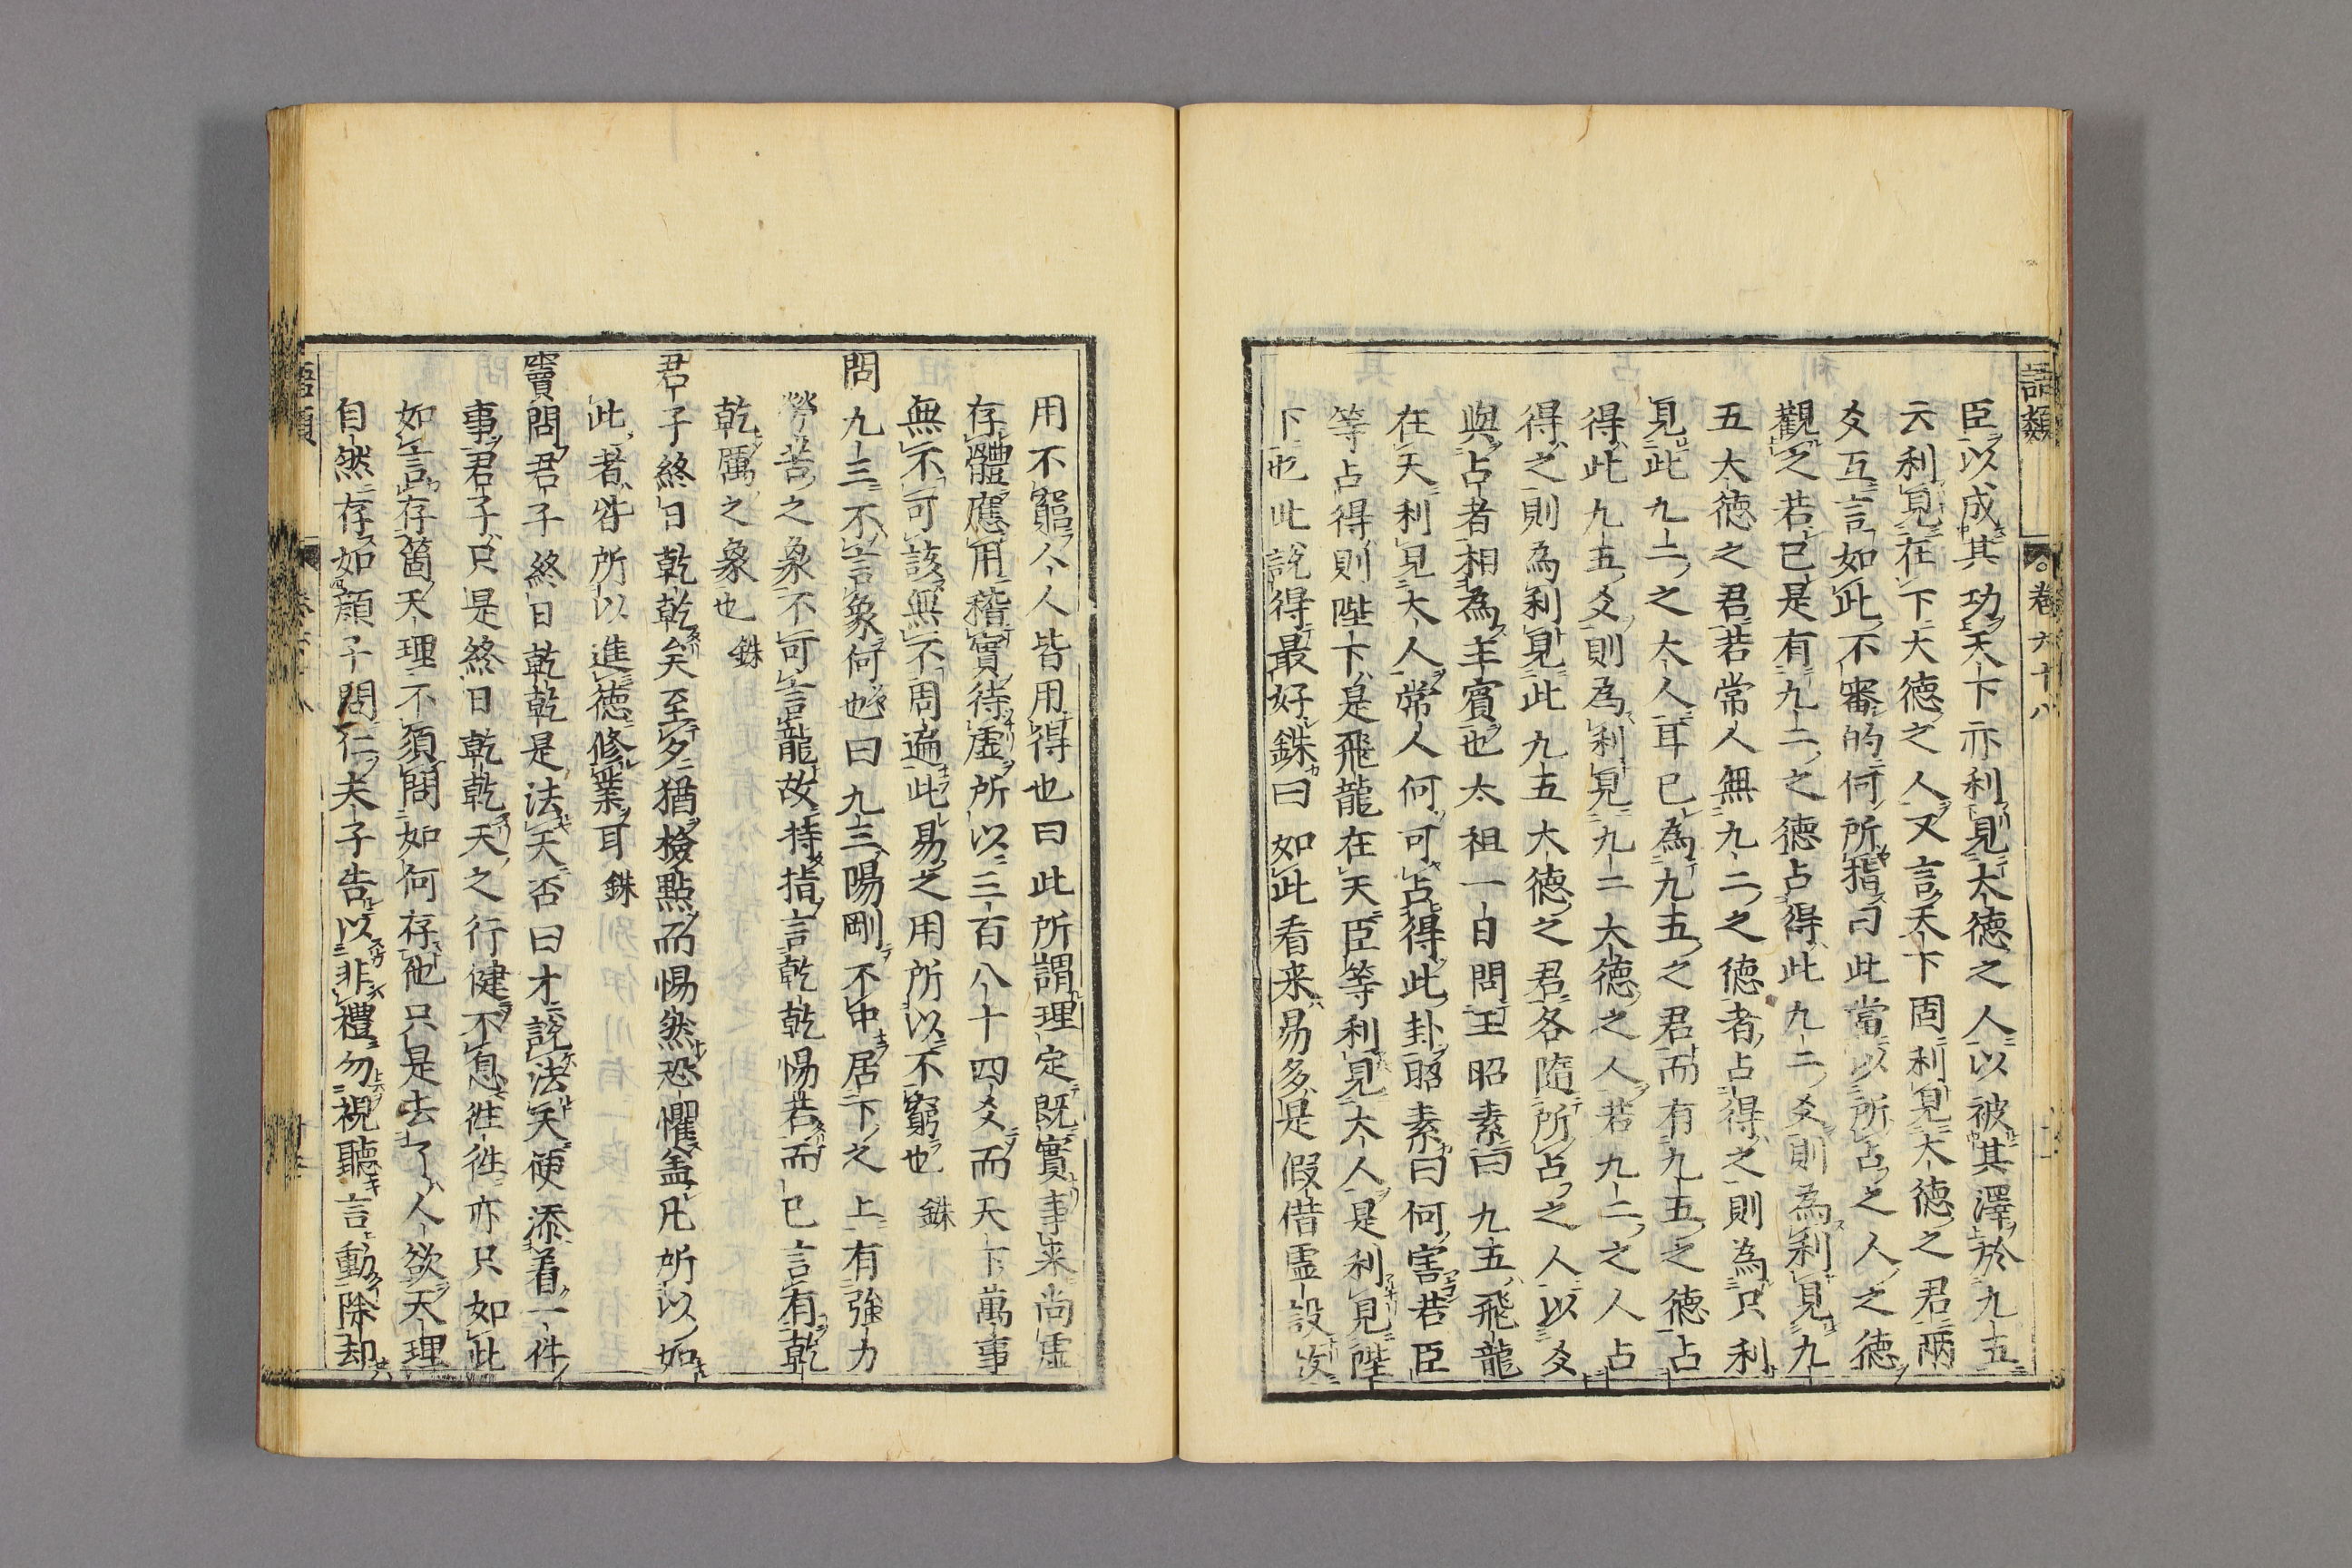 語類
卷六十八
臣以成其功天下亦利見大德之人以被其澤於九五
云利見在下大德之人又言天下固利見大德之君兩
爻互言如此不審的何所指曰此當以所占之人之德
觀之若已是有九二之德占得此九二爻則為利見九
五大德之君若常人無九二之德者占得之則為只利
見此九二之大人耳已為九五之君而有九五之德占
得此九五爻則為利見九二大德之人若九二之人占
得之則為利見此九五大德之君各隨所占之人以爻
與占者相為主賓也太祖一日問王昭素曰九五飛龍
在天利見大人常人何可占得此卦昭素曰何害若臣
等占得則陛下是飛龍在天臣等利見大人是利見陛
下也此說得最好銖曰如此看来易多是假借虛設故
用不窮人人皆用得也曰此所謂理定既實事来尚虛
存體應用稽實待虛所以三百八十四爻而天下萬事
無不可該無不周遍此易之用所以不窮也 銖
問九三不言象何也曰九三陽剛不中居下之上有強力
勞苦之象不可言龍故特指言乾乾惕若而已言有乾
乾厲之象也 銖
君子終日乾乾矣至夕猶檢點而惕然恐懼盖凡所以如
此者皆所以進德修業耳 銖
竇問君子終日乾乾是法天否曰才說法天便添着一件
事君子只是終日乾乾天之行健不息往往亦只如此
如言存箇天理不須問如何存他只是去了人欲天理
自然存如顏子問仁夫子告以非禮勿視聽言動除却